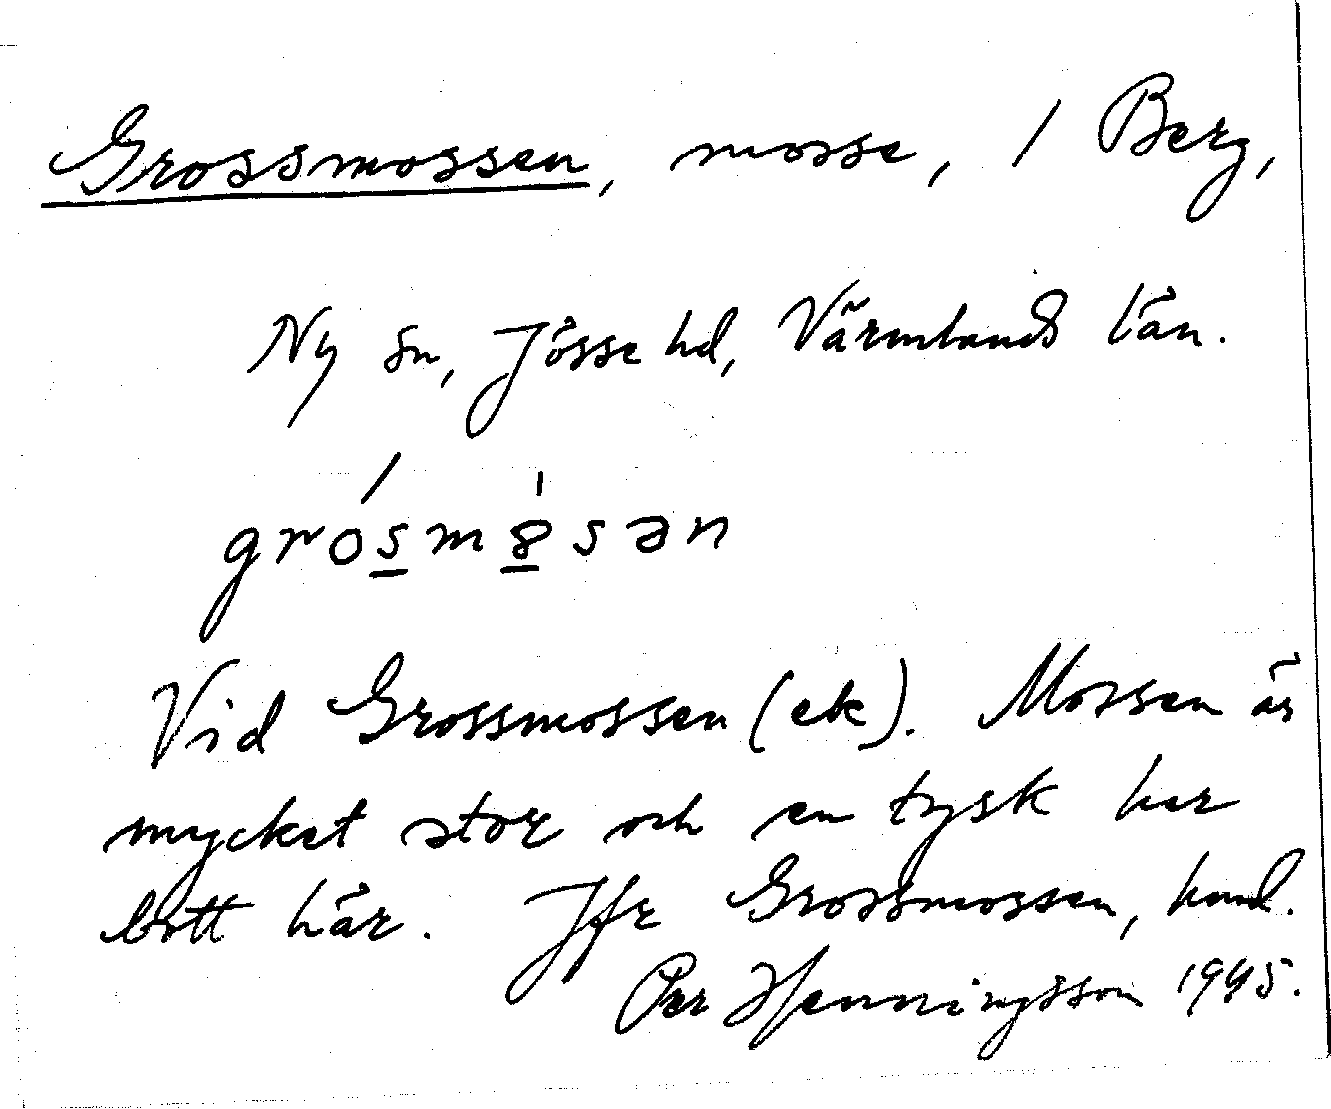 Grossmossen, mosse, / Berg,
Ny sn, Jösse hd, Värmlands län.
grósmøsən
Vid Grossmossen (ek). Mossen är
mycket stor och en tysk har
bott här. Jfr Grossmossen,
Per Henningsson 1945.